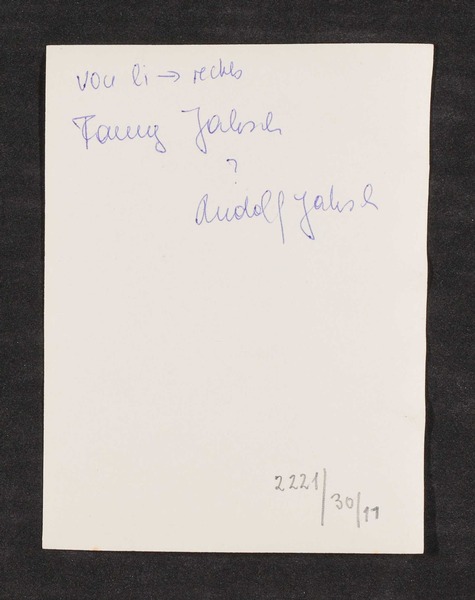 von li → rechts
Fanny Jaksch
?
Rudolf Jaksch
2221/30/11